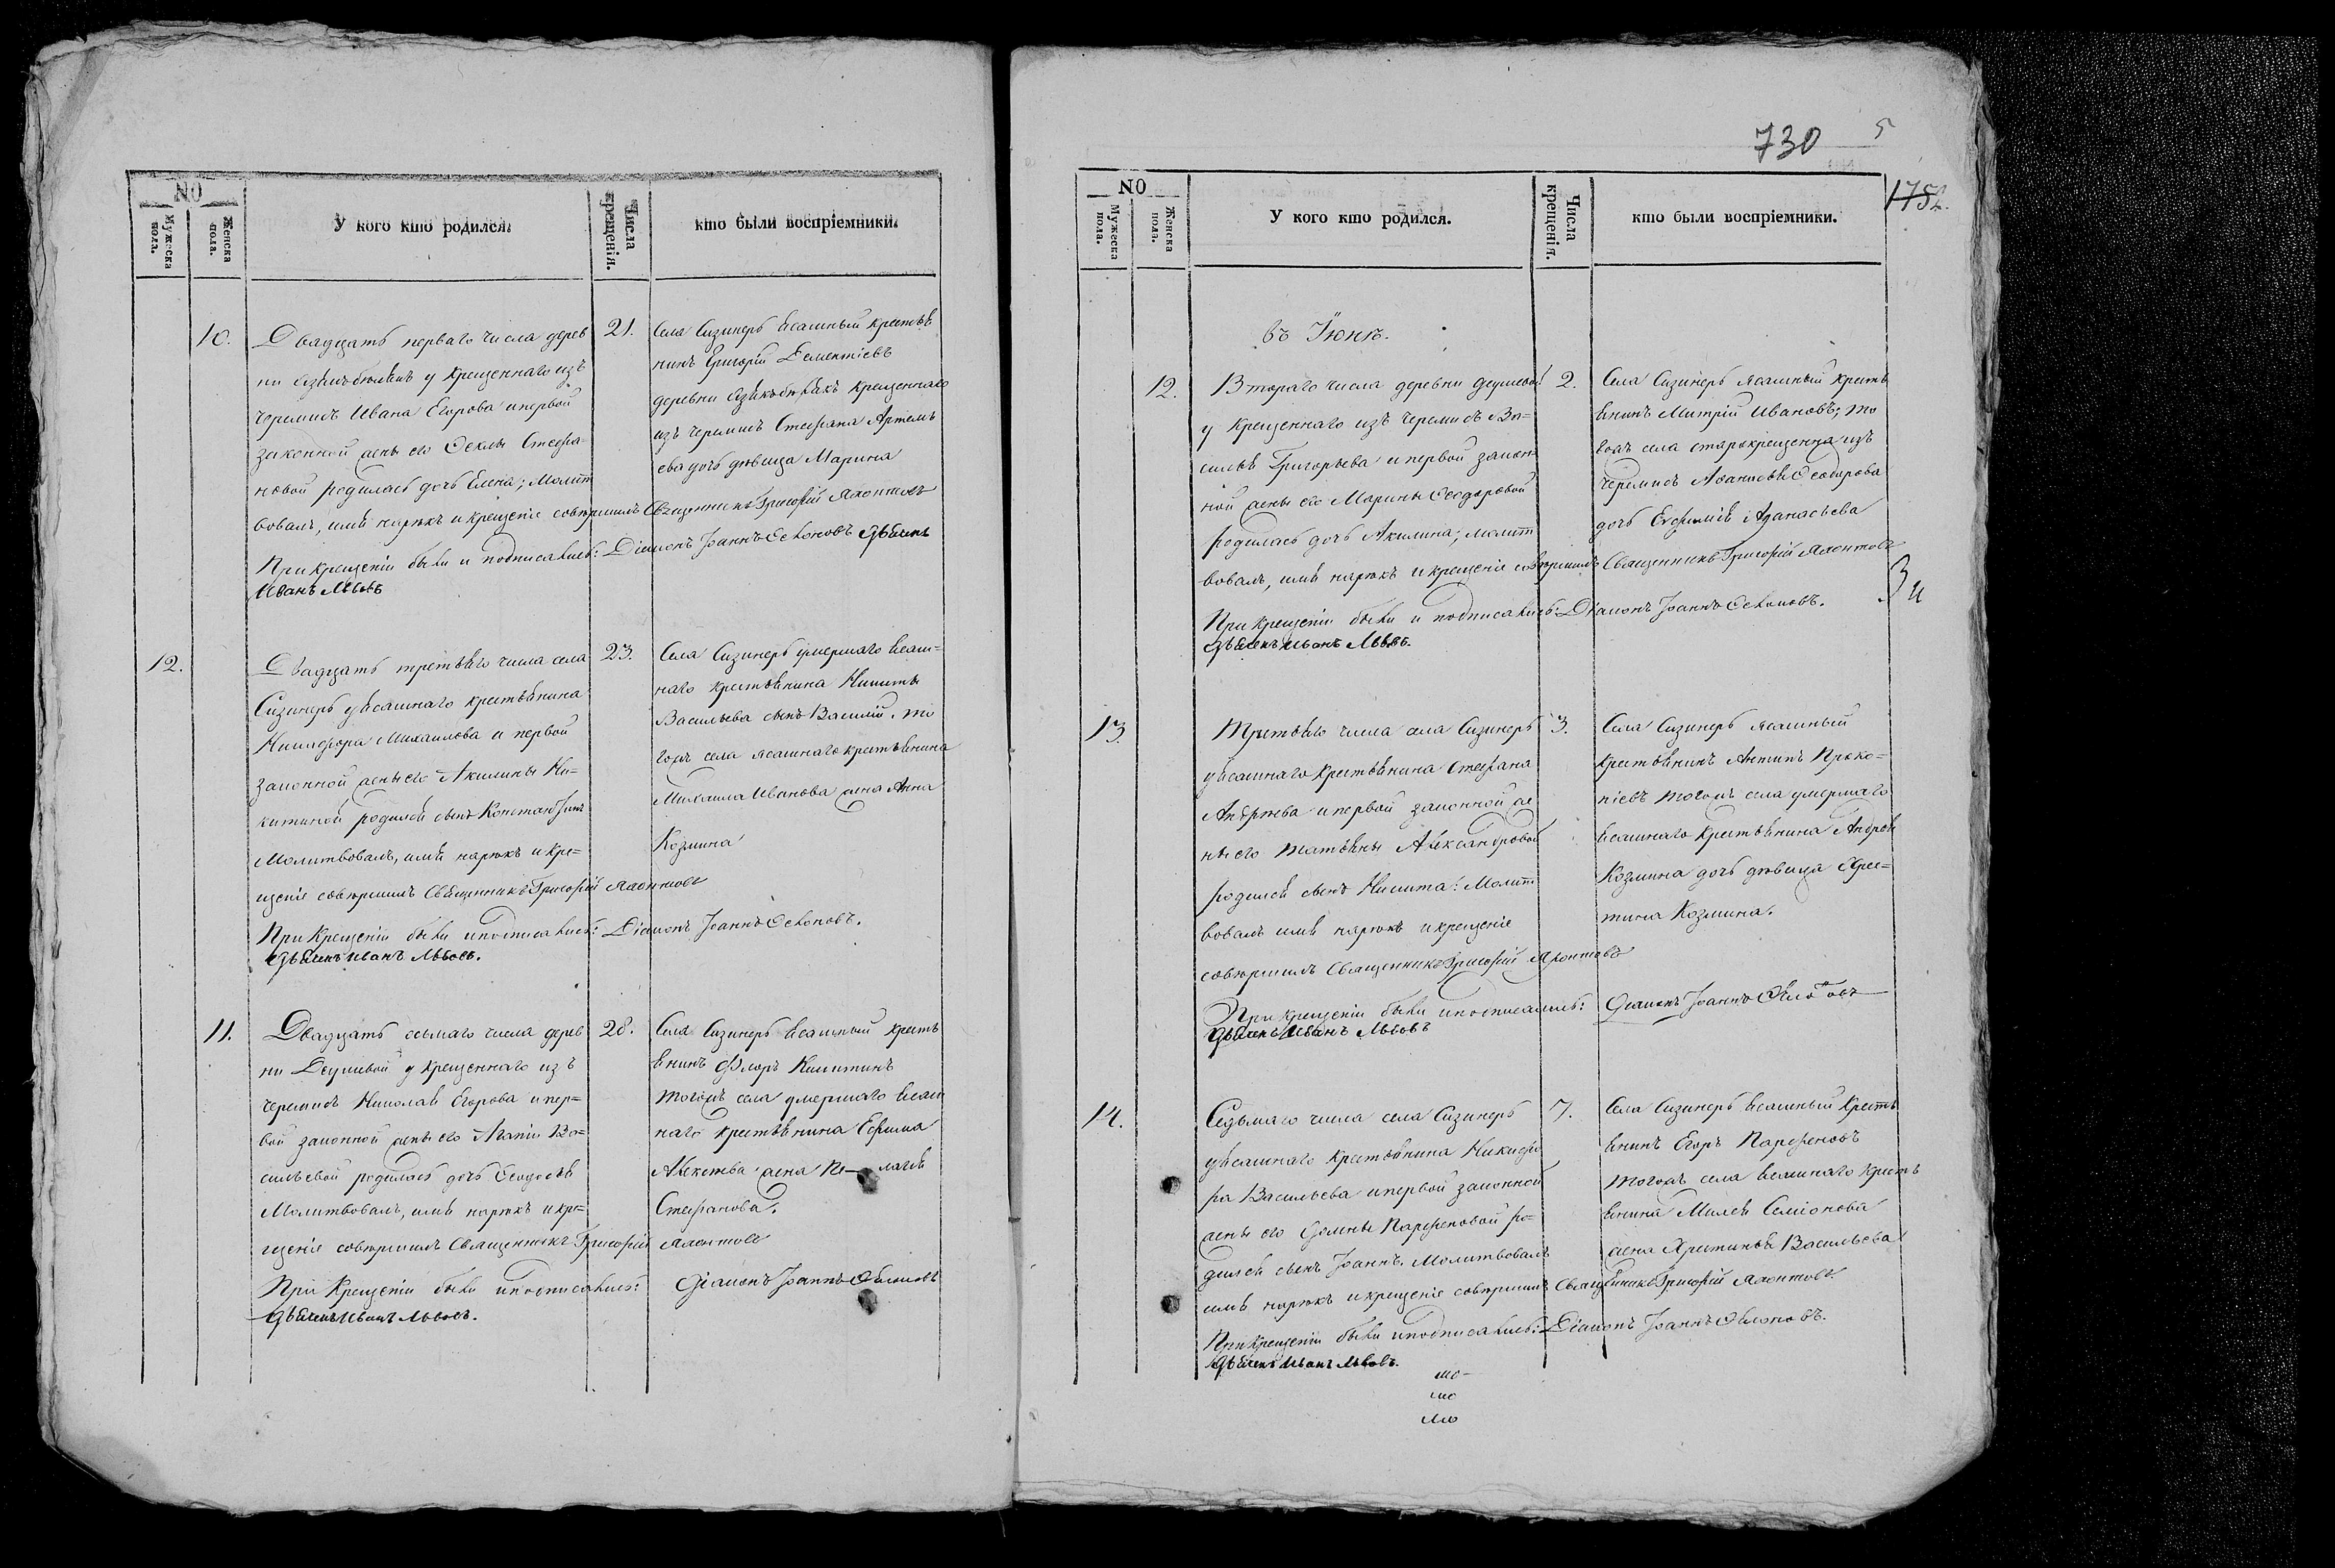 NO
Мужеска пола.
Женска пола.
У кого кто родился.
Числа крещенія.
кто были воспріемники.
10.
Двадцать перваго числа дерев
ни у крещеннаго изъ
черемисъ Ивана Егорова и первой
законной жены его Феклы Стефа-
новой родилась дочь Елена; Молит
вовалъ, имя нарѣкъ и крещеніе совѣршилъ Священникъ Григорій
При крещеніи были и подписались: Діаконъ Іоаннъ дьячекъ
Иванъ Львовъ
21.
Села Сизнеръ ясашный крестья
нинъ Григорій Дементіевъ
деревни крещеннаго
изъ черемисъ Стефана Артемь
ева дочь дѣвица Марина
12.
Двадцать третьяго числа села
Сизнеръ у ясашнаго крестьянина
Никифора Михаилова и первой
законной жены его Акилины Ни-
китиной родился сынъ Константинъ
Молитвовалъ, имя нарѣкъ и кре-
щеніе совѣршилъ Священникъ Григорій
При крещеніи были и подписались: Діаконъ Іоаннъ
дьячекъ Иванъ Львовъ.
23.
Села Сизнеръ умершаго ясаш-
наго крестьянина Никиты
Васильева сынъ Василій. то
гожъ села ясашнаго крестьянина
Михаила Иванова жена Анна
Козмина
11.
Двадцать осьмаго числа дерев
ни Деушевой у крещеннаго изъ
черемисъ Николая Егорова и пер-
вой законной жены его Агапіи Ва-
сильевой родилась дочь Феодосья
Молитвовалъ, имя нарѣкъ и кре-
щеніе совѣршилъ Священникъ Григорій
При крещеніи были и подписались: Діаконъ Іоаннъ
дьячекъ Иванъ Львовъ.
28.
Села Сизнеръ ясашной кресть
янинъ Флоръ Никитинъ
тогожъ села умершаго ясаш
наго крестьянина Ефима
Алексѣева жена Пе- лагея
Стефанова.
730
5
1752.
NO
Мужеска пола.
Женска пола.
У кого кто родился.
Числа крещенія.
кто были воспріемники.
въ Іюнѣ.
12.
Втораго числа деревни Деушевой
у крещеннаго изъ черемисъ Ва-
силья Григорьева и первой закон
ной жены его Марины Феодоровой
родилась дочь Акилина; молит
вовалъ, имя нарѣкъ и крещеніе совѣршилъ Священникъ Григорій
При крещеніи были и подписались: Діаконъ Іоаннъ
дьячекъ Иванъ Львовъ.
2.
Села Сизнеръ ясашный кресть
янинъ Митрій Ивановъ; то
гожъ села старокрещенна изъ
черемисъ Афанасья Феодорова
дочь Евфимія Афанасьева
13.
Третьяго числа села Сизнеръ
у ясашнаго крестьянина Стефана
Андрѣева и первой законной же
ны его Татьяны Александровой
родился сынъ Никита: Молит
вовалъ имя нарѣкъ и крещеніе
совѣршилъ Священникъ Григорій
При крещеніи были и подписались: Діаконъ Іоаннъ
дьячекъ Иванъ Львовъ
3.
Села Сизнеръ ясашный
крестьянинъ Антипъ Проко-
піевъ тогожъ села умершаго
ясашнаго крестьянина Андрея
Козмина дочь дѣвица Хрис-
тина Козмина.
14.
Седьмаго числа села Сизнеръ
у ясашнаго крестьянина Никифо
ра Васильева и первой законной
жены его Парфеновой ро-
дился сынъ Іоаннъ. Молитвовалъ
имя нарѣкъ и крещеніе совѣршилъ Священникъ Григорій
При крещеніи были и подписались: Діаконъ Іоаннъ
дьячекъ Иванъ Львовъ.
7.
Села Сизнеръ ясашный кресть
янинъ Егоръ Парфеновъ
тогожъ села ясашнаго кресть
янина Семіонова
жена Христинья Васильева